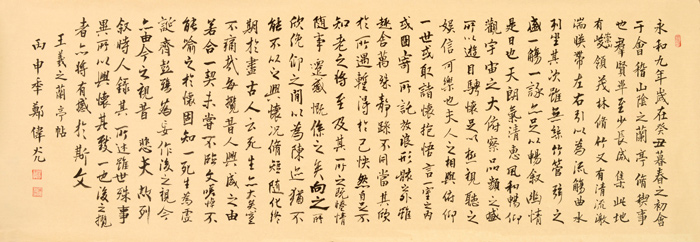 永和九年歲在癸丑暮春之初會
于會稽山陰之蘭亭脩稧事
也羣賢畢至少長咸集此地
有崇山峻領茂林脩竹又有清流激
湍暎帶左右引以為流觴曲水
列坐其次雖無絲竹管弦之
盛一觴一詠亦足以暢敘幽情
是日也天朗氣清惠風和暢仰
觀宇宙之大俯察品類之盛
所以遊目騁懷足以極視聽之
娛信可樂也夫人之相與俯仰
一世或取諸懷抱悟言一室之內
或因寄所託放浪形骸之外雖
趣舍萬殊靜躁不同當其欣
於所遇蹔得於己快然自足不
知老之將至及其所之既惓情
隨事遷感慨係之矣向之所
欣俛仰之間以為陳迹猶不
能不以之興懷況脩短隨化終
期於盡古人云死生亦大矣豈
不痛哉每攬昔人興感之由
若合一契未嘗不臨文嗟悼不
能喻之於懷固知一死生為虛
誕齊彭殤為妄作後之視今
亦由今之視昔悲夫故列
敘時人錄其所述雖世殊事
異所以興懷其致一也後之攬
者亦將有感於斯文
王羲之蘭亭帖
丙申季鄭偉光